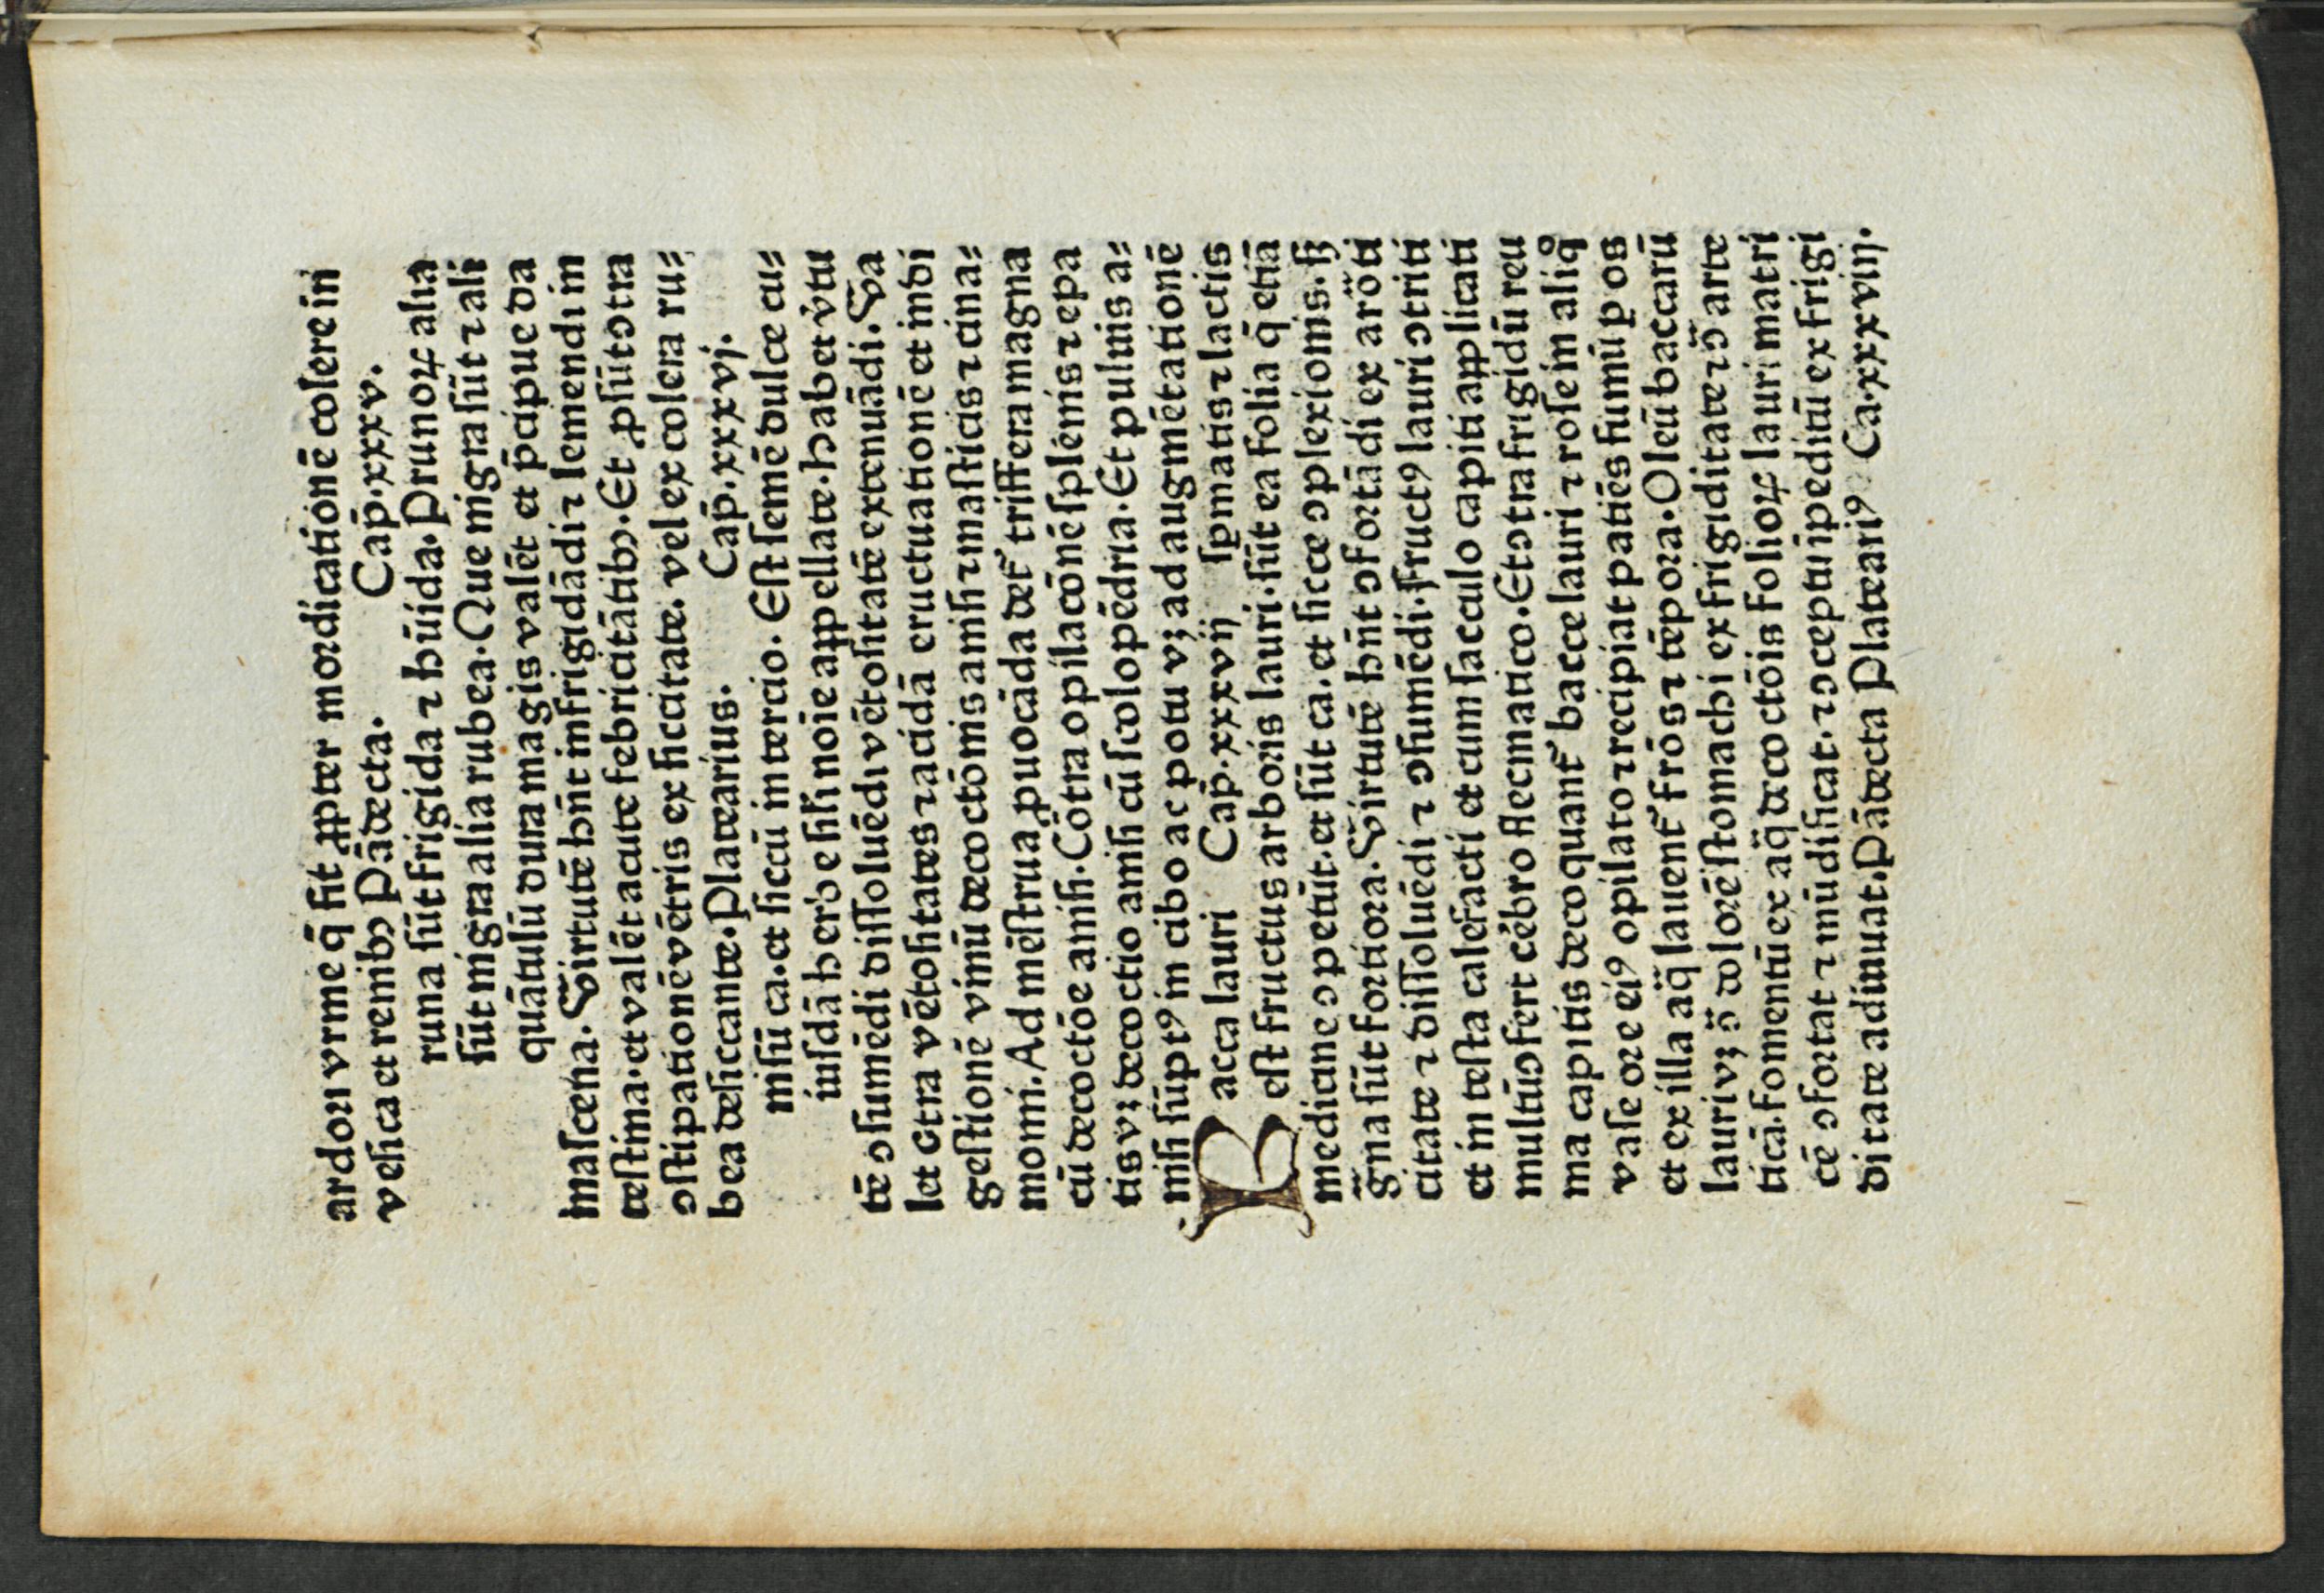 ardorꝫ vrine q̄ fit ꝓpter mordicationē colere in
vesica et renibꝰ Pādecta. Cap̄.xxv.
runa sūt frigida ⁊ hūida. Prunoꝝ alia
sūt nigra alia rubea. Que nigra sūt ⁊ ali
quātulū dura magis valēt et p̄cipue da
mascena. Virtutē hn̄t infrigidādi ⁊ leniendi in
testina. et valēt acute febricitātibꝰ. Et ꝓsūt ↄtra
ↄstipationē vētris ex siccitate. vel ex colera ru⸗
bea desiccante. Platearius. Cap̄.xxxvj.
nisū ca. et siccū in tercio. Est semē dulce cu⸗
iusdā herbe sil'i noīe appellate. habet v̓tu
tē ↄsumēdi dissoluēdi vētositatē extenuādi. Va
let ↄtra vētositates ⁊ acidā eructuationē et indi
gestionē vinū decoctōnis anisi ⁊ masticis ⁊ cina⸗
momi. Ad mēstrua ꝓuocāda det᷑ triffera magna
cū decoctōe anisi. Cōtra opilacōnē splenis ⁊ epa
tis vꝫ decoctio anisi cū scolopēdria. Et puluis a⸗
nisi sūptꝰ in cibo ac potu vꝫ ad augmētationē
acca lauri Cap̄.xxxvij spmatis ⁊ lactis
B est fructus arboris lauri. sūt ea folia q̄ etiā
medicine ↄpetūt. et sūt ca. et sicce ↄplexionis. sꝫ
gna sūt fortiora. Virtutē hn̄t ↄfortādi ex arōti
citate ⁊ dissoluēdi ⁊ ↄsumēdi. Fructꝰ lauri ↄtriti
et in testa calefacti et cum sacculo capiti applicati
multū ↄfert cēbro flecmatico. Et ↄtra frigidū reu
ma capitis decoquant᷑ bacce lauri ⁊ rose in aliqͦ
vase ore eiꝰ opilato ⁊ recipiat patiēs fumū ꝑ os
et ex illa aq̄ lauent᷑ frōs ⁊ tēpora. Oleū baccarū
lauri vꝫ ↄ̄ dolorē stomachi ex frigiditate ⁊ ↄ̄ arte
ticā. Fomentū ex aq̄ decoctōis folioꝝ lauri matri
cē ↄfortat ⁊ mūdificat. ⁊ ↄceptui īpeditū ex frigi
ditate adiuuat. Pādecta Plateariꝰ Ca.xxxviij.